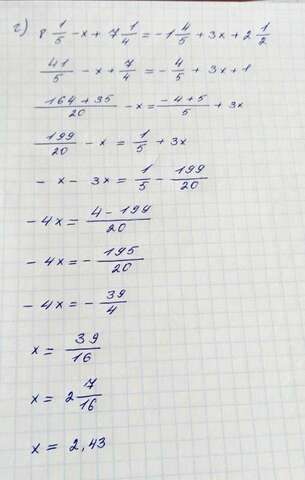 г) 8 1/5 - x + 7 1/4 = -1 4/5 + 3x + 2 1/2
41/5 - x + 7/4 = - 4/5 + 3x + 1
(164 + 35)/20 - x = (-4 + 5)/5 + 3x
199/20 - x = 1/5 + 3x
- x - 3x = 1/5 - 199/20
- 4x = (4 - 199)/20
- 4x = - 195/20
- 4x = - 39/4
x = 39/16
x = 2 7/16
x = 2,43